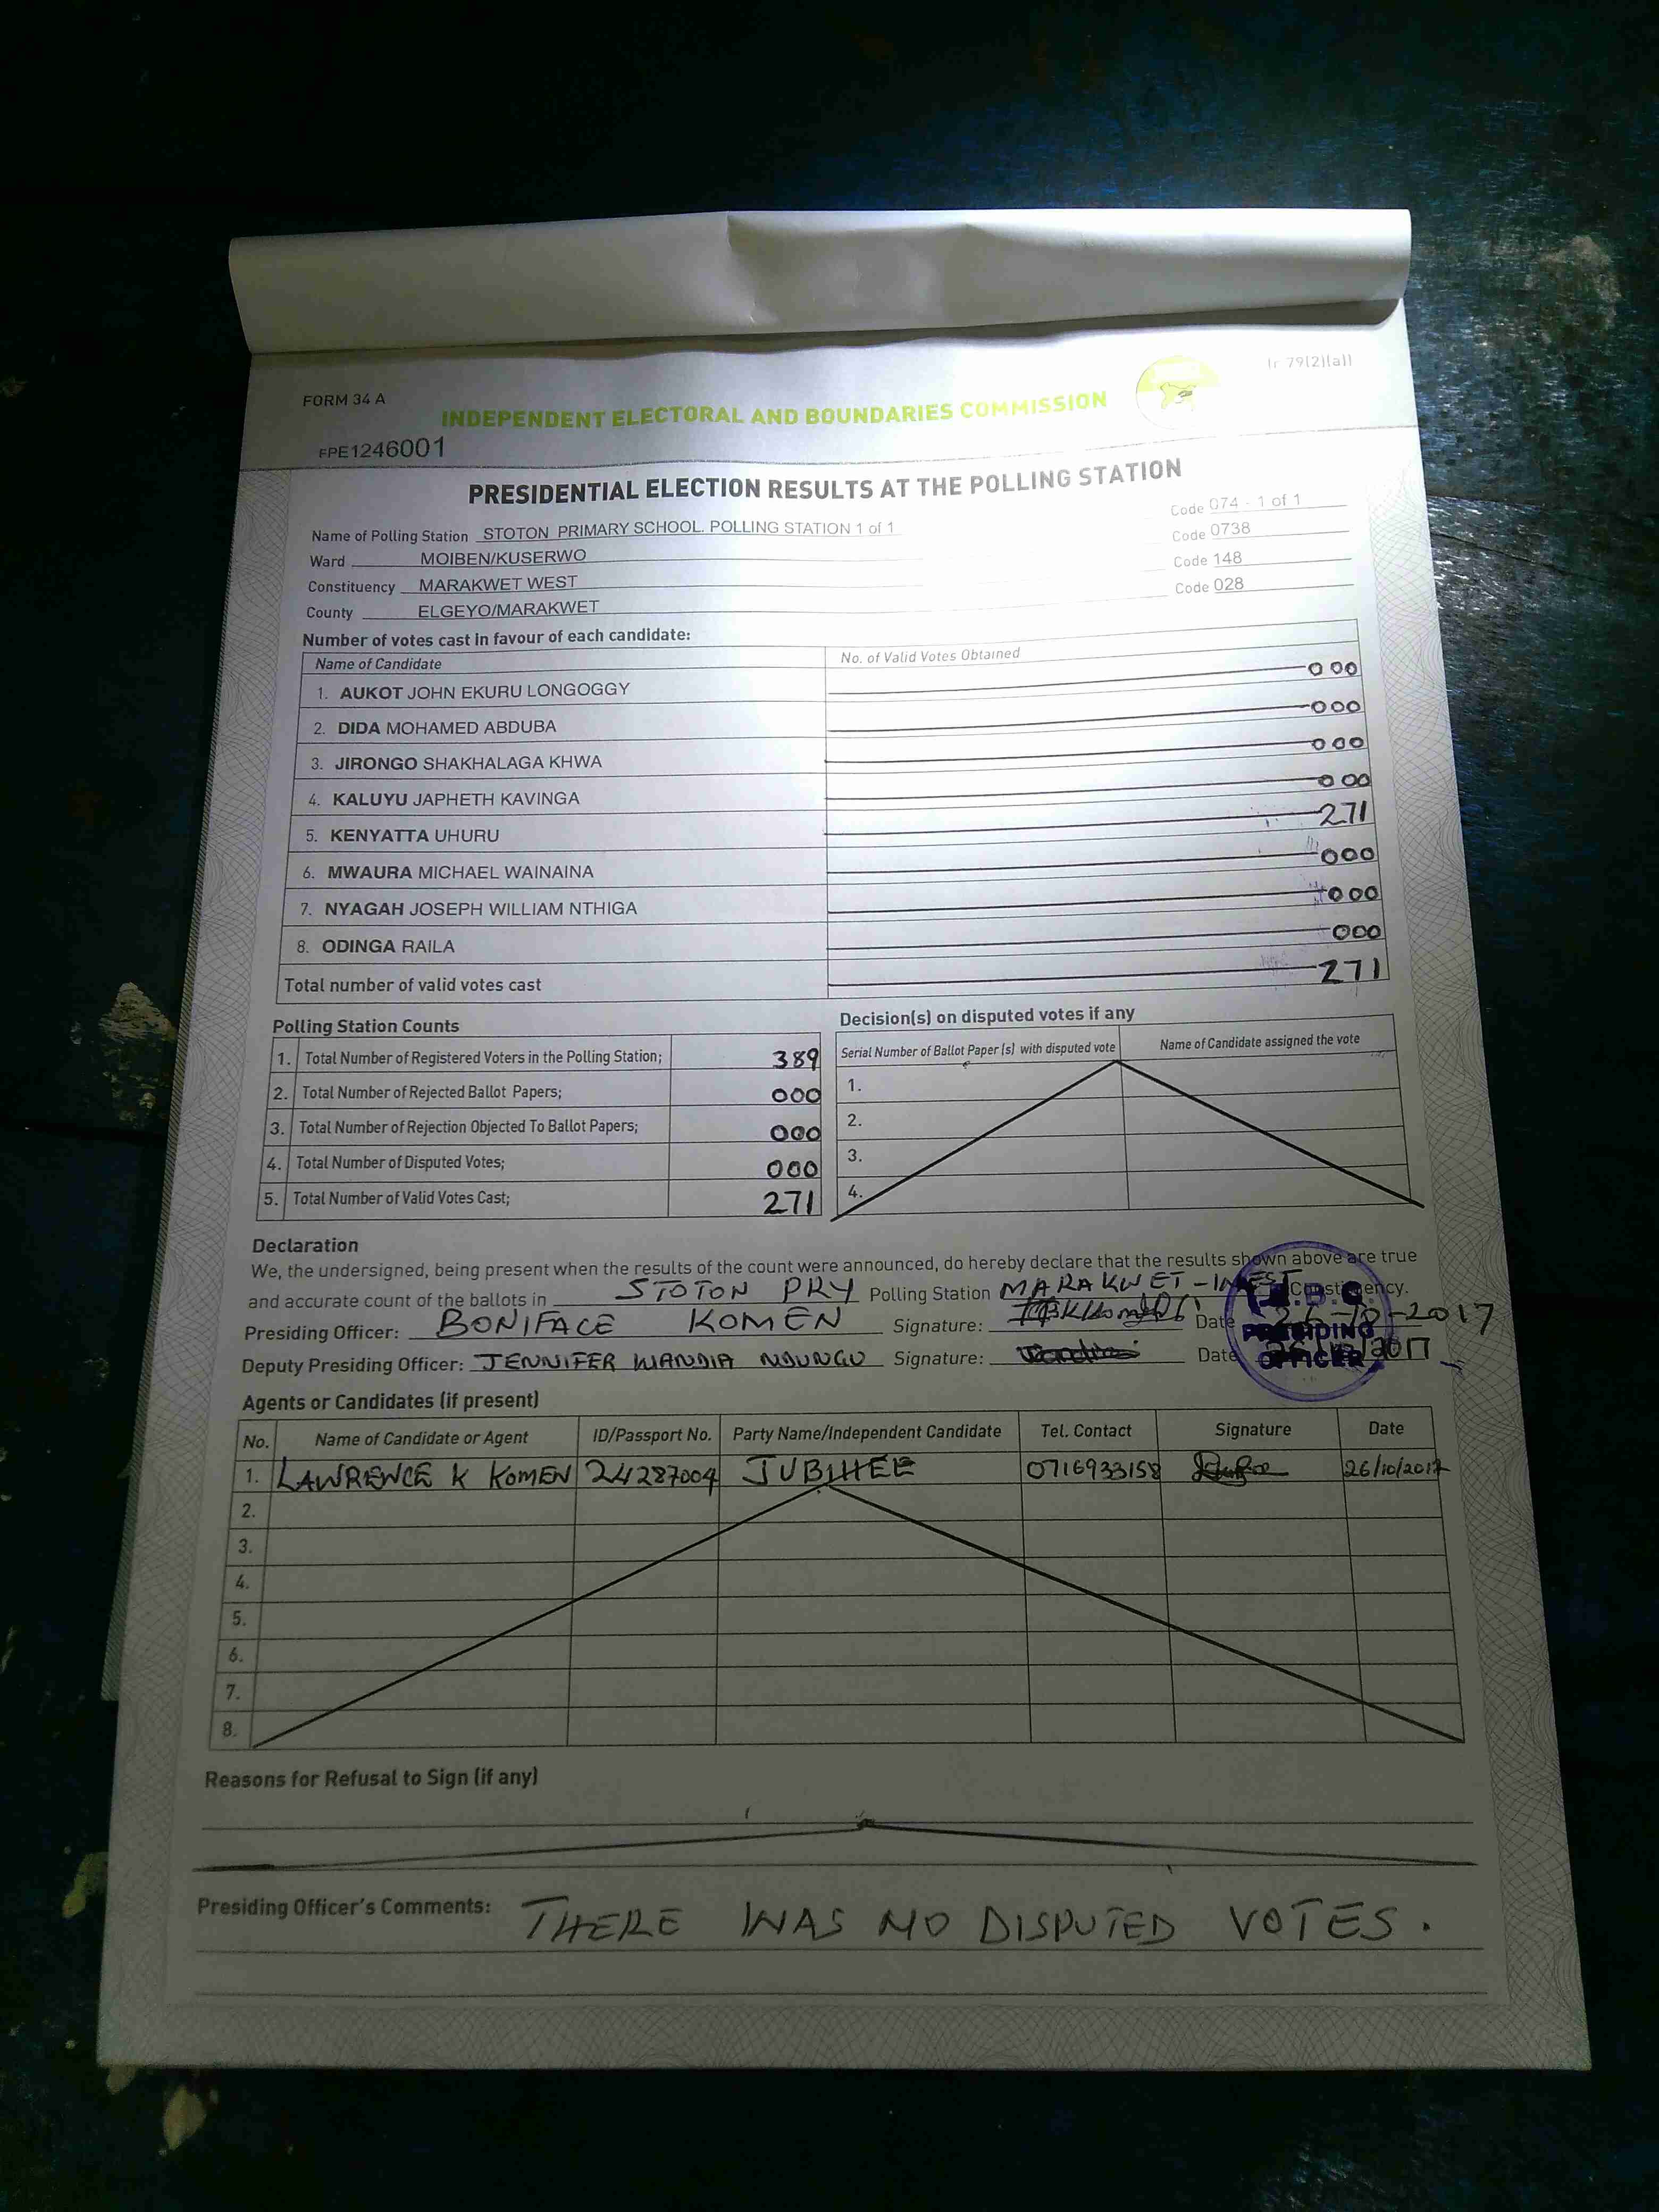 (r 79(2)(a))
FORM 34 A
INDEPENDENT ELECTORAL AND BOUNDARIES COMMISSION
FPE1246001
PRESIDENTIAL ELECTION RESULTS AT THE POLLING STATION
Name of Polling Station STOTON PRIMARY SCHOOL. POLLING STATION 1 of 1 Code 074 - 1 of 1
Ward MOIBEN/KUSERWO Code 0738
Constituency MARAKWET WEST Code 148
County ELGEYO/MARAKWET Code 028
Number of votes cast in favour of each candidate:
Name of Candidate No. of Valid Votes Obtained
1. AUKOT JOHN EKURU LONGOGGY 000
2. DIDA MOHAMED ABDUBA 000
3. JIRONGO SHAKHALAGA KHWA 000
4. KALUYU JAPHETH KAVINGA 000
5. KENYATTA UHURU 271
6. MWAURA MICHAEL WAINAINA 000
7. NYAGAH JOSEPH WILLIAM NTHIGA 000
8. ODINGA RAILA 000
Total number of valid votes cast 271
Polling Station Counts
1. Total Number of Registered Voters in the Polling Station; 389
2. Total Number of Rejected Ballot Papers; 000
3. Total Number of Rejection Objected To Ballot Papers; 000
4. Total Number of Disputed Votes; 000
5. Total Number of Valid Votes Cast; 271
Decision(s) on disputed votes if any
Serial Number of Ballot Paper (s) with disputed vote Name of Candidate assigned the vote
1.
2.
3.
4.
Declaration
We, the undersigned, being present when the results of the count were announced, do hereby declare that the results shown above are true
and accurate count of the ballots in STOTON PRY Polling Station MARAKWET-WEST Constituency.
Presiding Officer: BONIFACE KOMEN Signature: Date 26-10-2017
Deputy Presiding Officer: JENNIFER WANDIA NDUNGU Signature: Date 2017
PRESIDING
OFFICER
Agents or Candidates (if present)
No. Name of Candidate or Agent ID/Passport No. Party Name/Independent Candidate Tel. Contact Signature Date
1. LAWRENCE K KOMEN 24287004 JUBILEE 0716933158 26/10/2017
2.
3.
4.
5.
6.
7.
8.
Reasons for Refusal to Sign (if any)
Presiding Officer's Comments: THERE WAS NO DISPUTED VOTES.